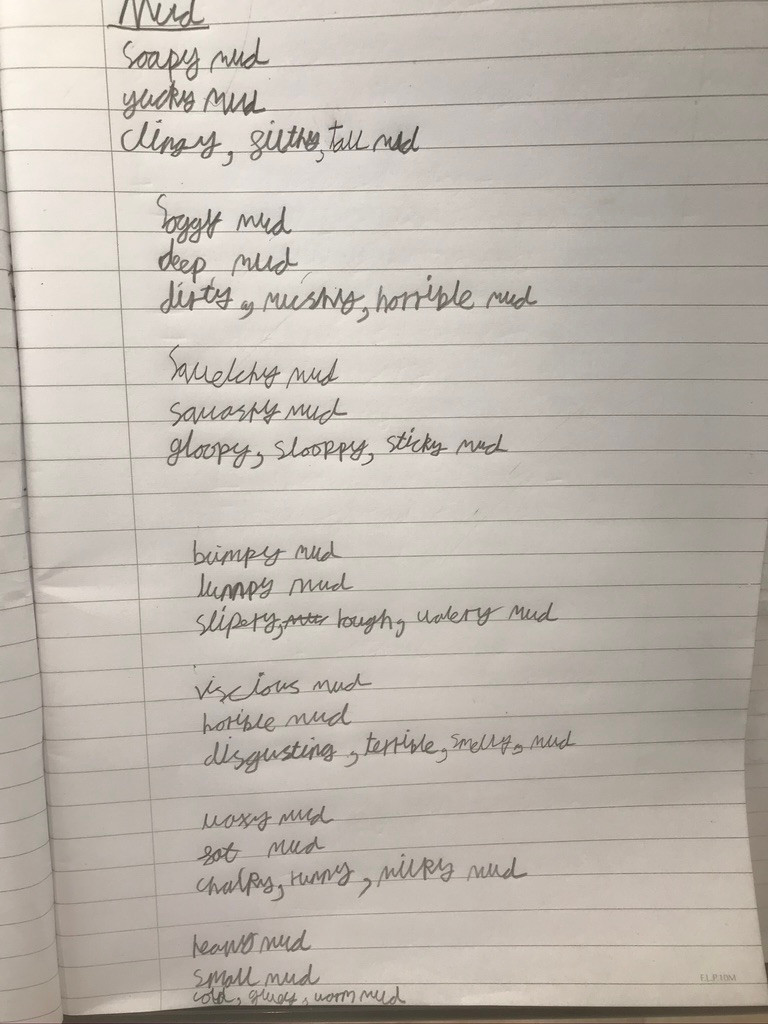 Mud
Soapy mud
yucky mud
clingy, filthy, tall mud
Soggy mud
deep mud
dirty, mushy, horrible mud
Squelchy mud
squashy mud
gloopy, slooppy, sticky mud
bumpy mud
lumpy mud
slipery, tough, watery mud
viscious mud
horible mud
disgusting, terrible, smelly, mud
waxy mud
fat mud
chalky, runny, milky mud
heavy mud
small mud
cold, gluey, worm mud
F.L.P.10M